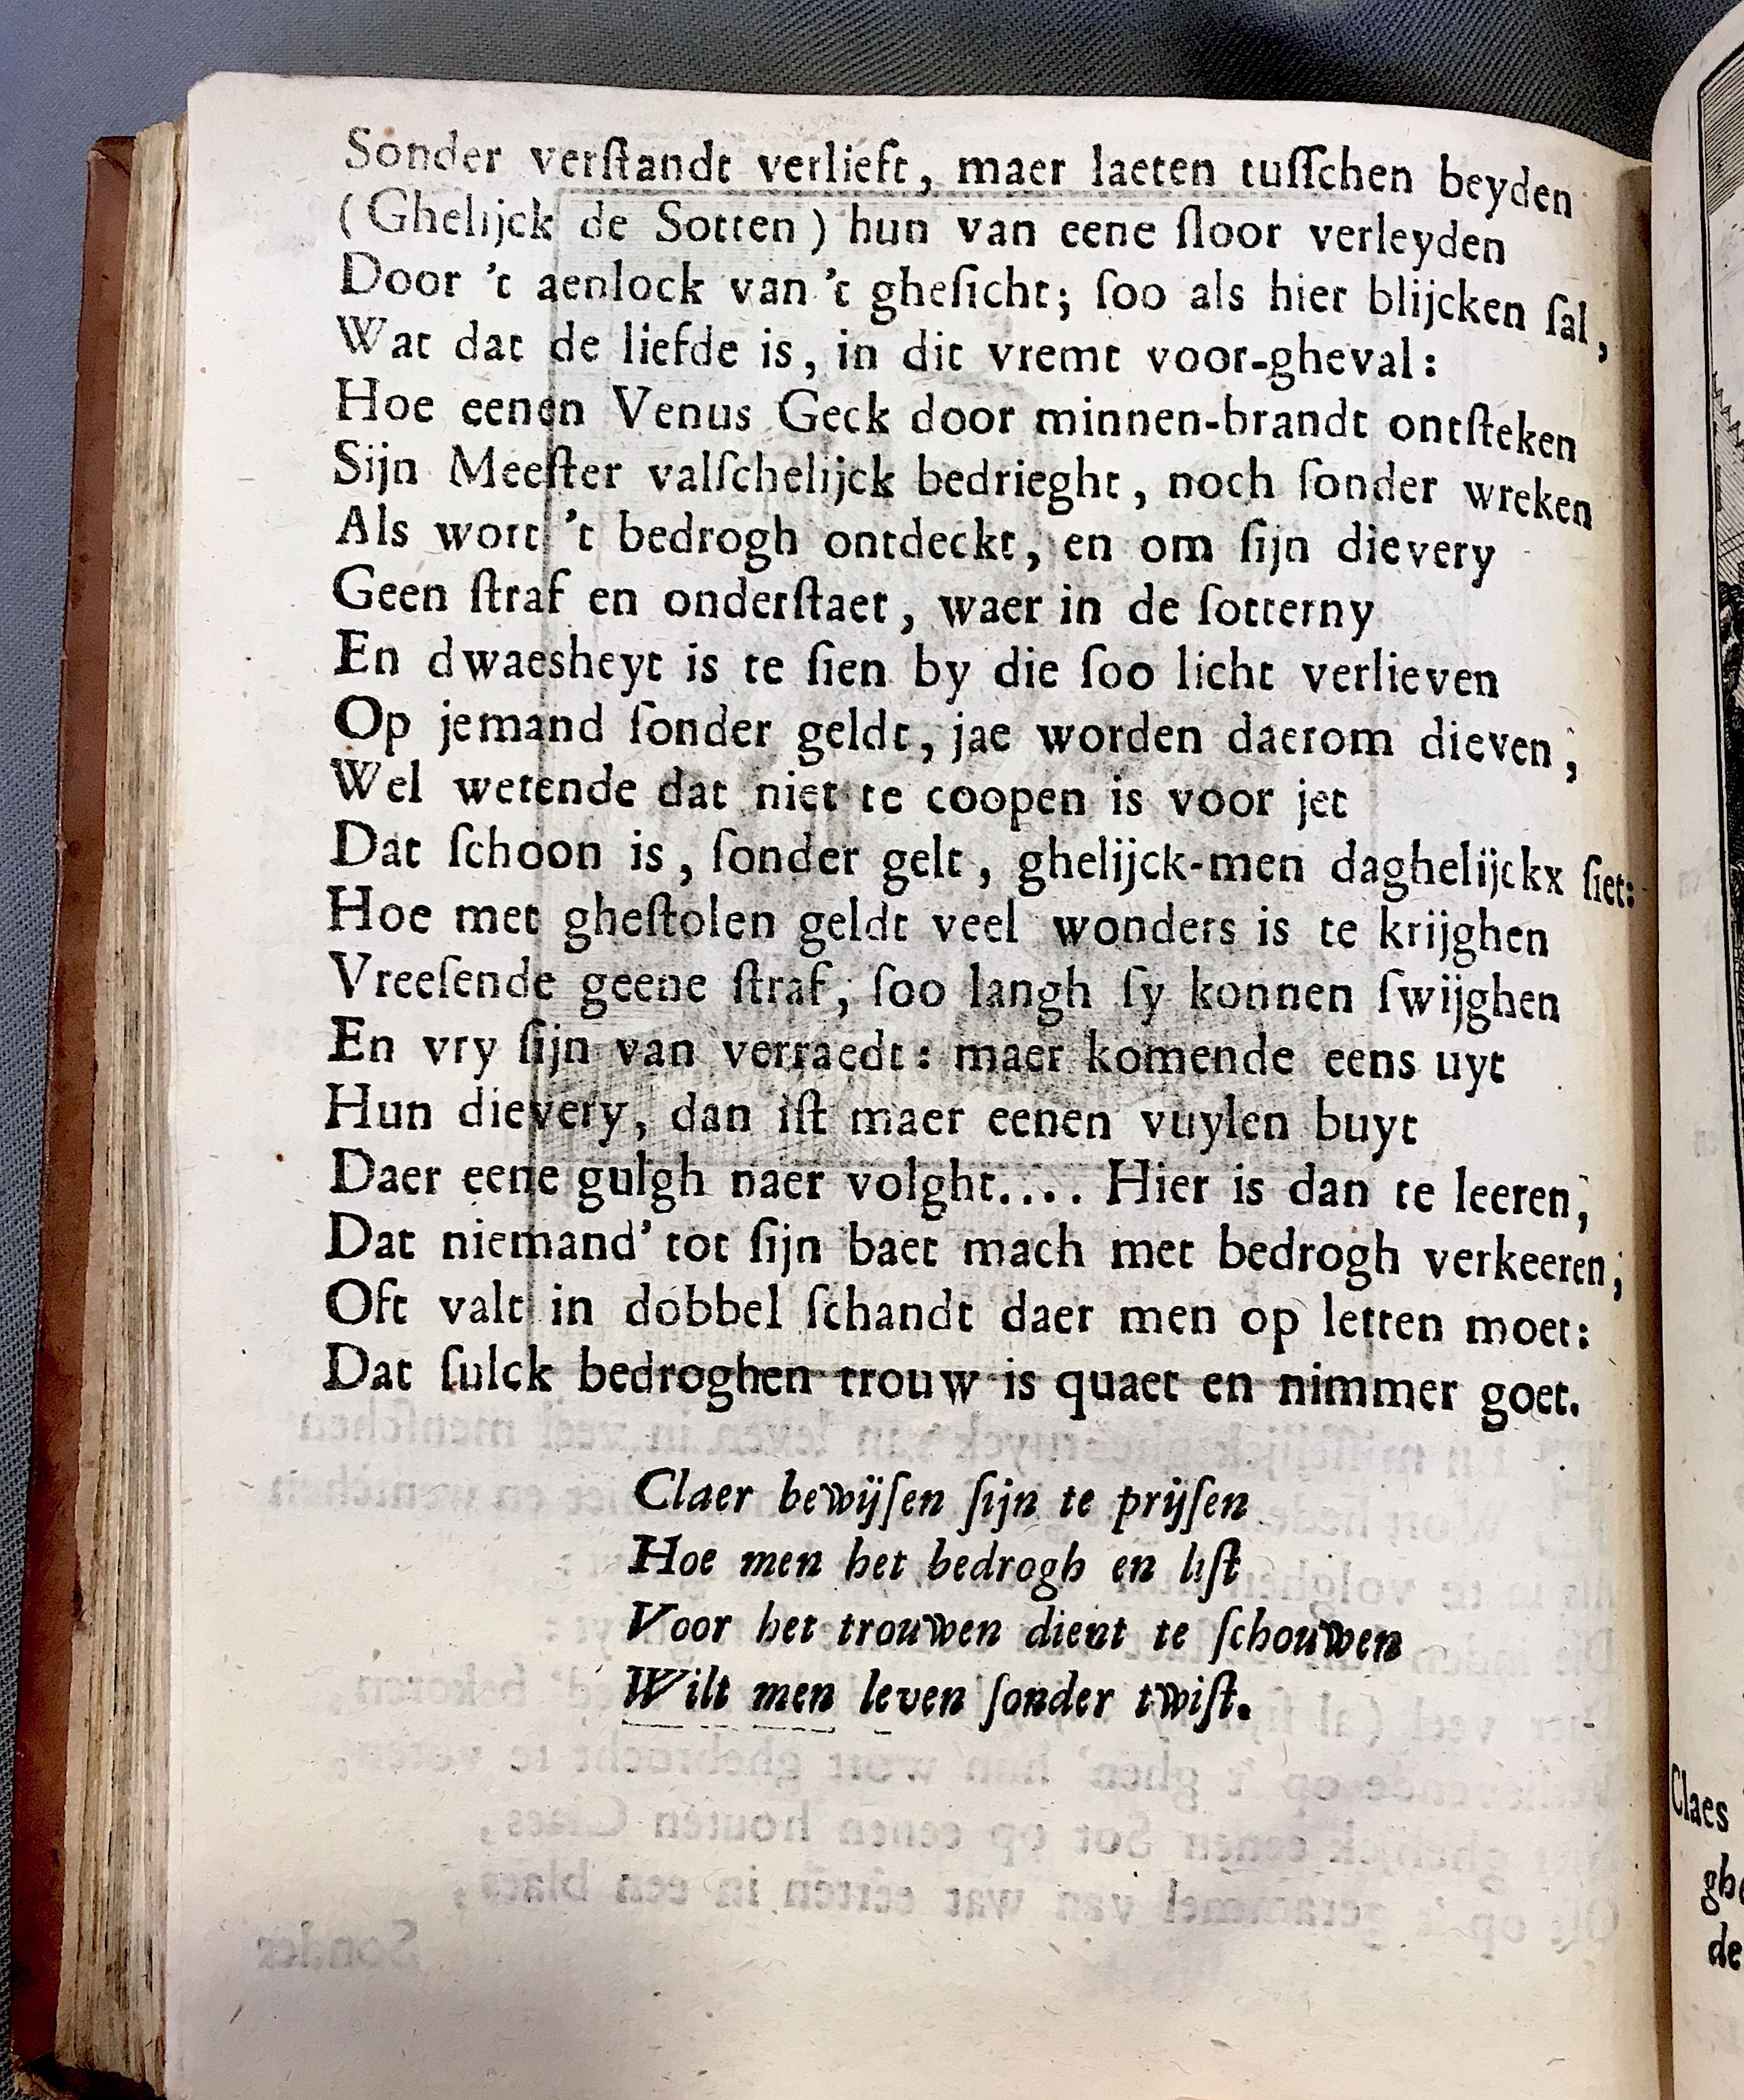 Sonder verſtandt verlieft, maer laeten tuſſchen beyden
(Ghelijck de Sotten) hun van eene ſloor verleyden
Door 't aenlock van 't gheſicht; ſoo als hier blijcken ſal,
Wat dat de liefde is, in dit vremt voor-gheval:
Hoe eenen Venus Geck door minnen-brandt ontſteken
Sijn Meeſter valſchelijck bedrieght, noch ſonder wreken
Als wort 't bedrogh ontdeckt, en om ſijn dievery
Geen ſtraf en onderſtaet, waer in de ſotterny
En dwaesheyt is te ſien by die ſoo licht verlieven
Op jemand ſonder geldt, jae worden daerom dieven,
Wel wetende dat niet te coopen is voor jet
Dat ſchoon is, ſonder gelt, ghelijck-men daghelijckx ſiet:
Hoe met gheſtolen geldt veel wonders is te krijghen
Vreeſende geene ſtraf, ſoo langh ſy konnen ſwijghen
En vry ſijn van verraedt: maer komende eens uyt
Hun dievery, dan iſt maer eenen vuylen buyt
Daer eene gulgh naer volght.... Hier is dan te leeren,
Dat niemand' tot ſijn baet mach met bedrogh verkeeren,
Oft valt in dobbel ſchandt daer men op letten moet:
Dat ſulck bedroghen trouw is quaet en nimmer goet.
Claer bewijſen ſijn te prijſen
Hoe men het bedrogh en liſt
Voor het trouwen dient te ſchouwen
Wilt men leven ſonder twiſt.
Claes